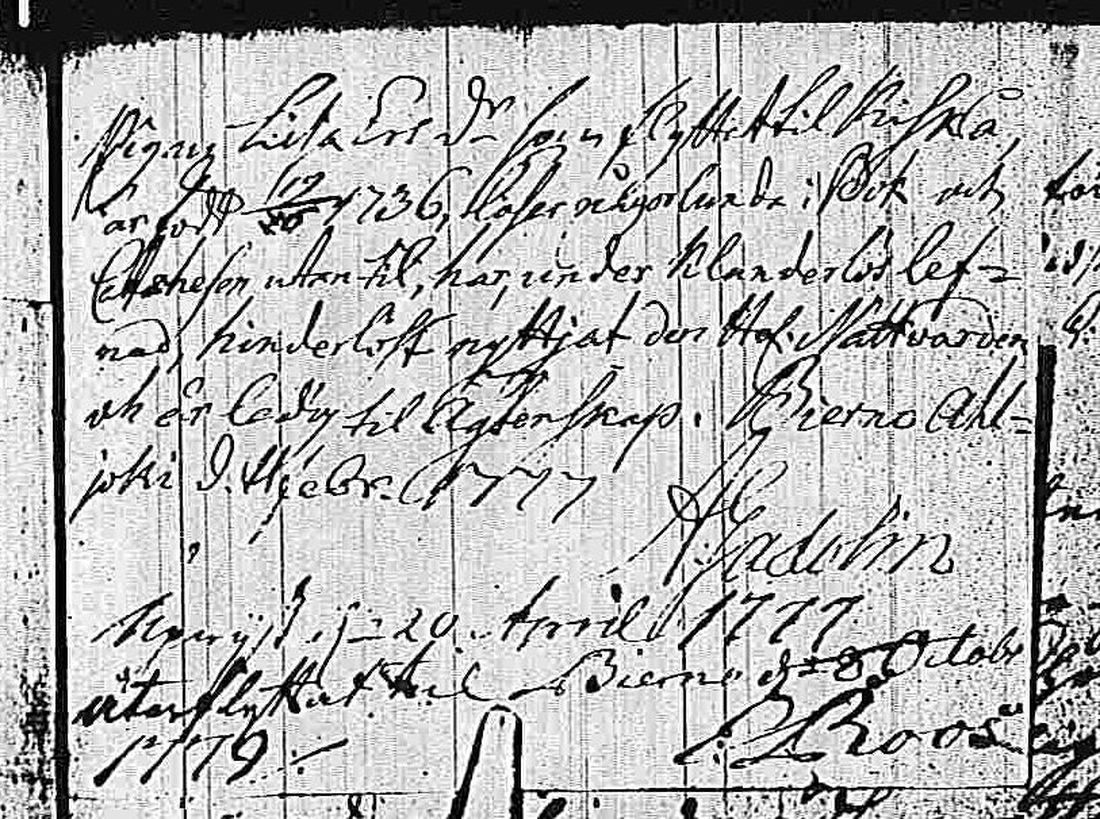 Pigan Lisa Ers dr som flyttat til Kiskå,
är född 12/10 1736, läser någorlunda i Bok och
Cathesen utan til, har, under klanderlös lef=
nad, hinderlöst nyttjat den H. Nattvarden
och är ledig til Ägtenskap. Bierno Ahl=
joki d. Febr. 1777
A. Gadolin
d 20 April 1777
åter flyttat til Bierno d. 8 Octobr
1779.
E. Roos